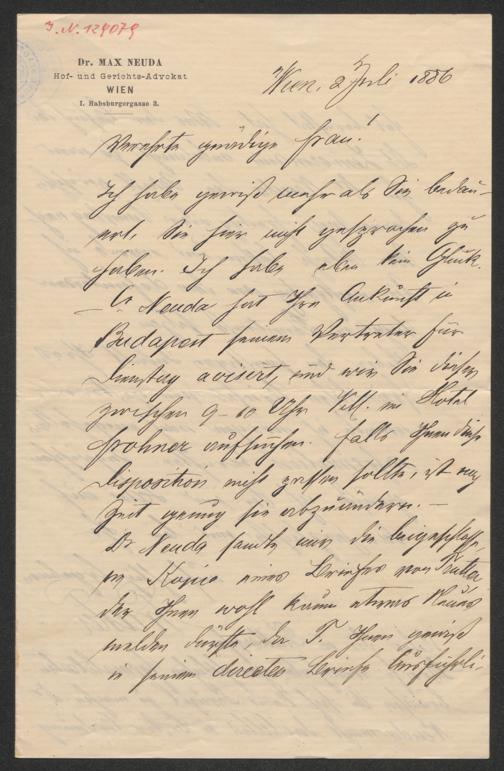 J. N. 129079
Dr. MAX NEUDA
Hof- und Gerichts-Advokat
WIEN
I. Habsburgergasse 3.
Wien, 2 Juli 1886
Verehrte gnädige Frau!
Ich habe gewiß mehr als Sie bedau-
ert, Sie hier nicht gesprochen zu
haben. Ich habe eben kein Glück.
– Dr Neuda hat Ihre Ankunft in
Budapest seinem Vertreter für
Dienstag avisirt, und wird Sie dieser
zwischen 9–10 Uhr VM. im Hotel
aufsuchen. Falls Ihnen diese
Disposition nicht passen sollte, ist noch
Zeit genug sie abzuändern. –
Dr Neuda sandte mir die beigeschlosse-
ne Kopie eines Briefes von
der Ihnen wohl kaum etwas Neues
melden dürfte, da T. Ihnen gewiß
in seinem directen Briefe Ausführli-